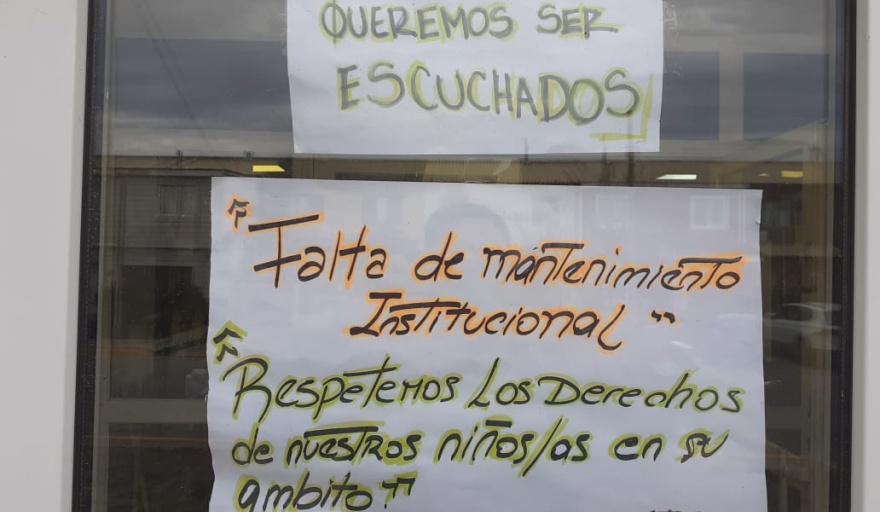 QUEREMOS SER
ESCUCHADOS
"Falta de mantenimiento
Institucional"
"Respetemos los Derechos
de nuestros niños/as en su
ambito"